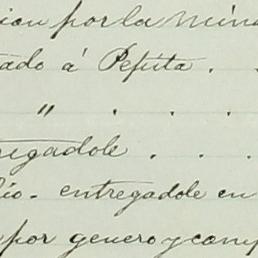 cion por la mina
tado á Pepita . .
" . . .
regadole . . .
lio - entregadole en
por genero y comp